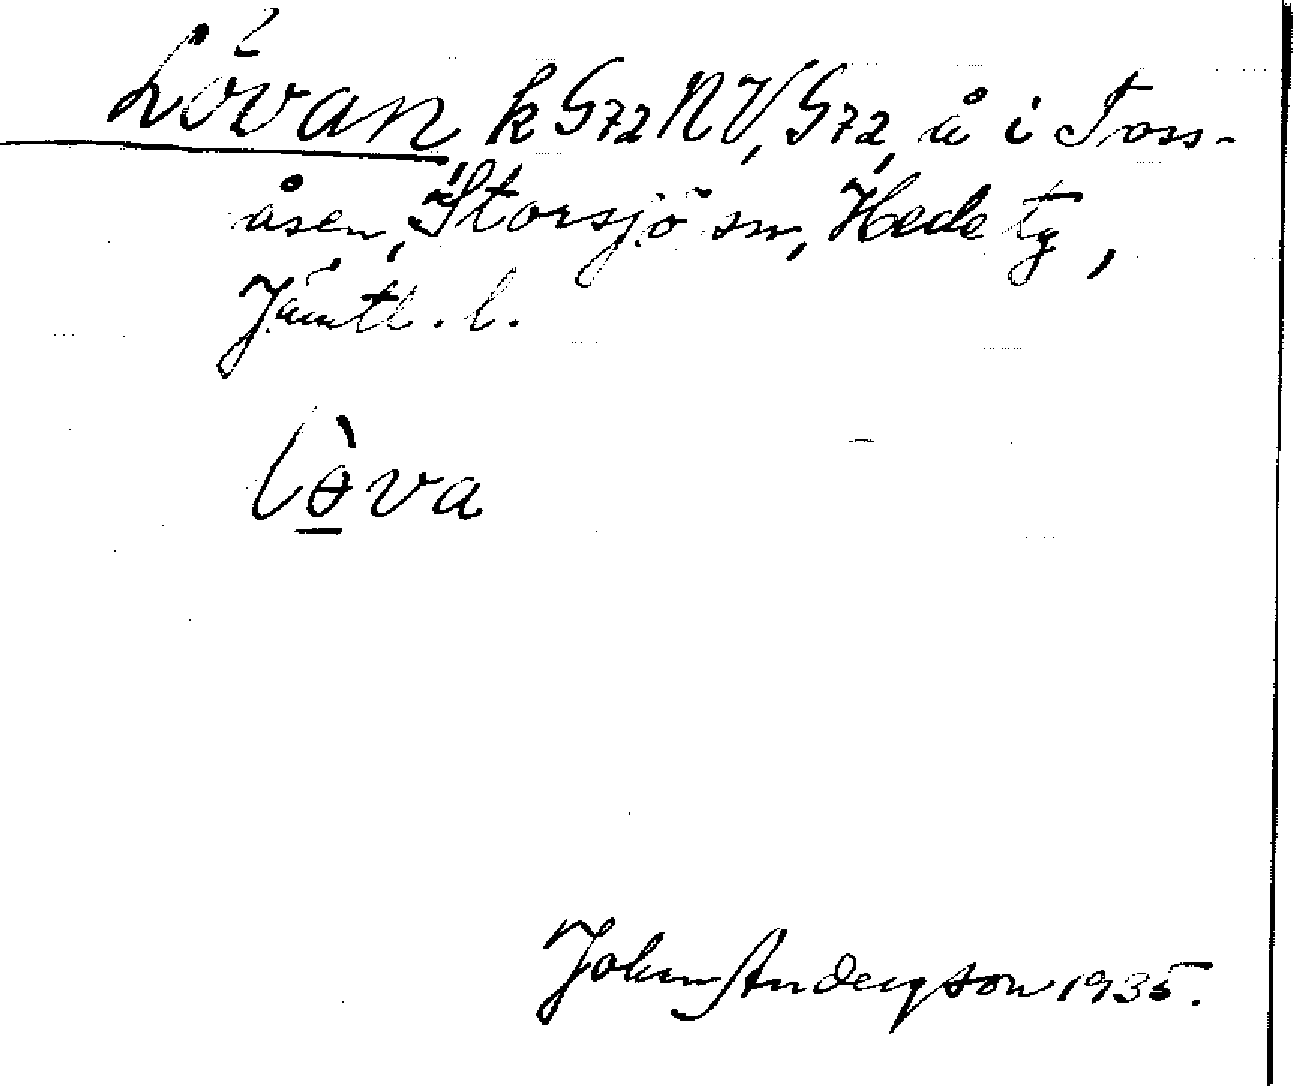 Lövan, k G72 NV, G72, å i Toss-
åsen, Storsjö sn, Hede tg,
Jämtl. l.
lɵ̱̀va
John Andersson 1935.